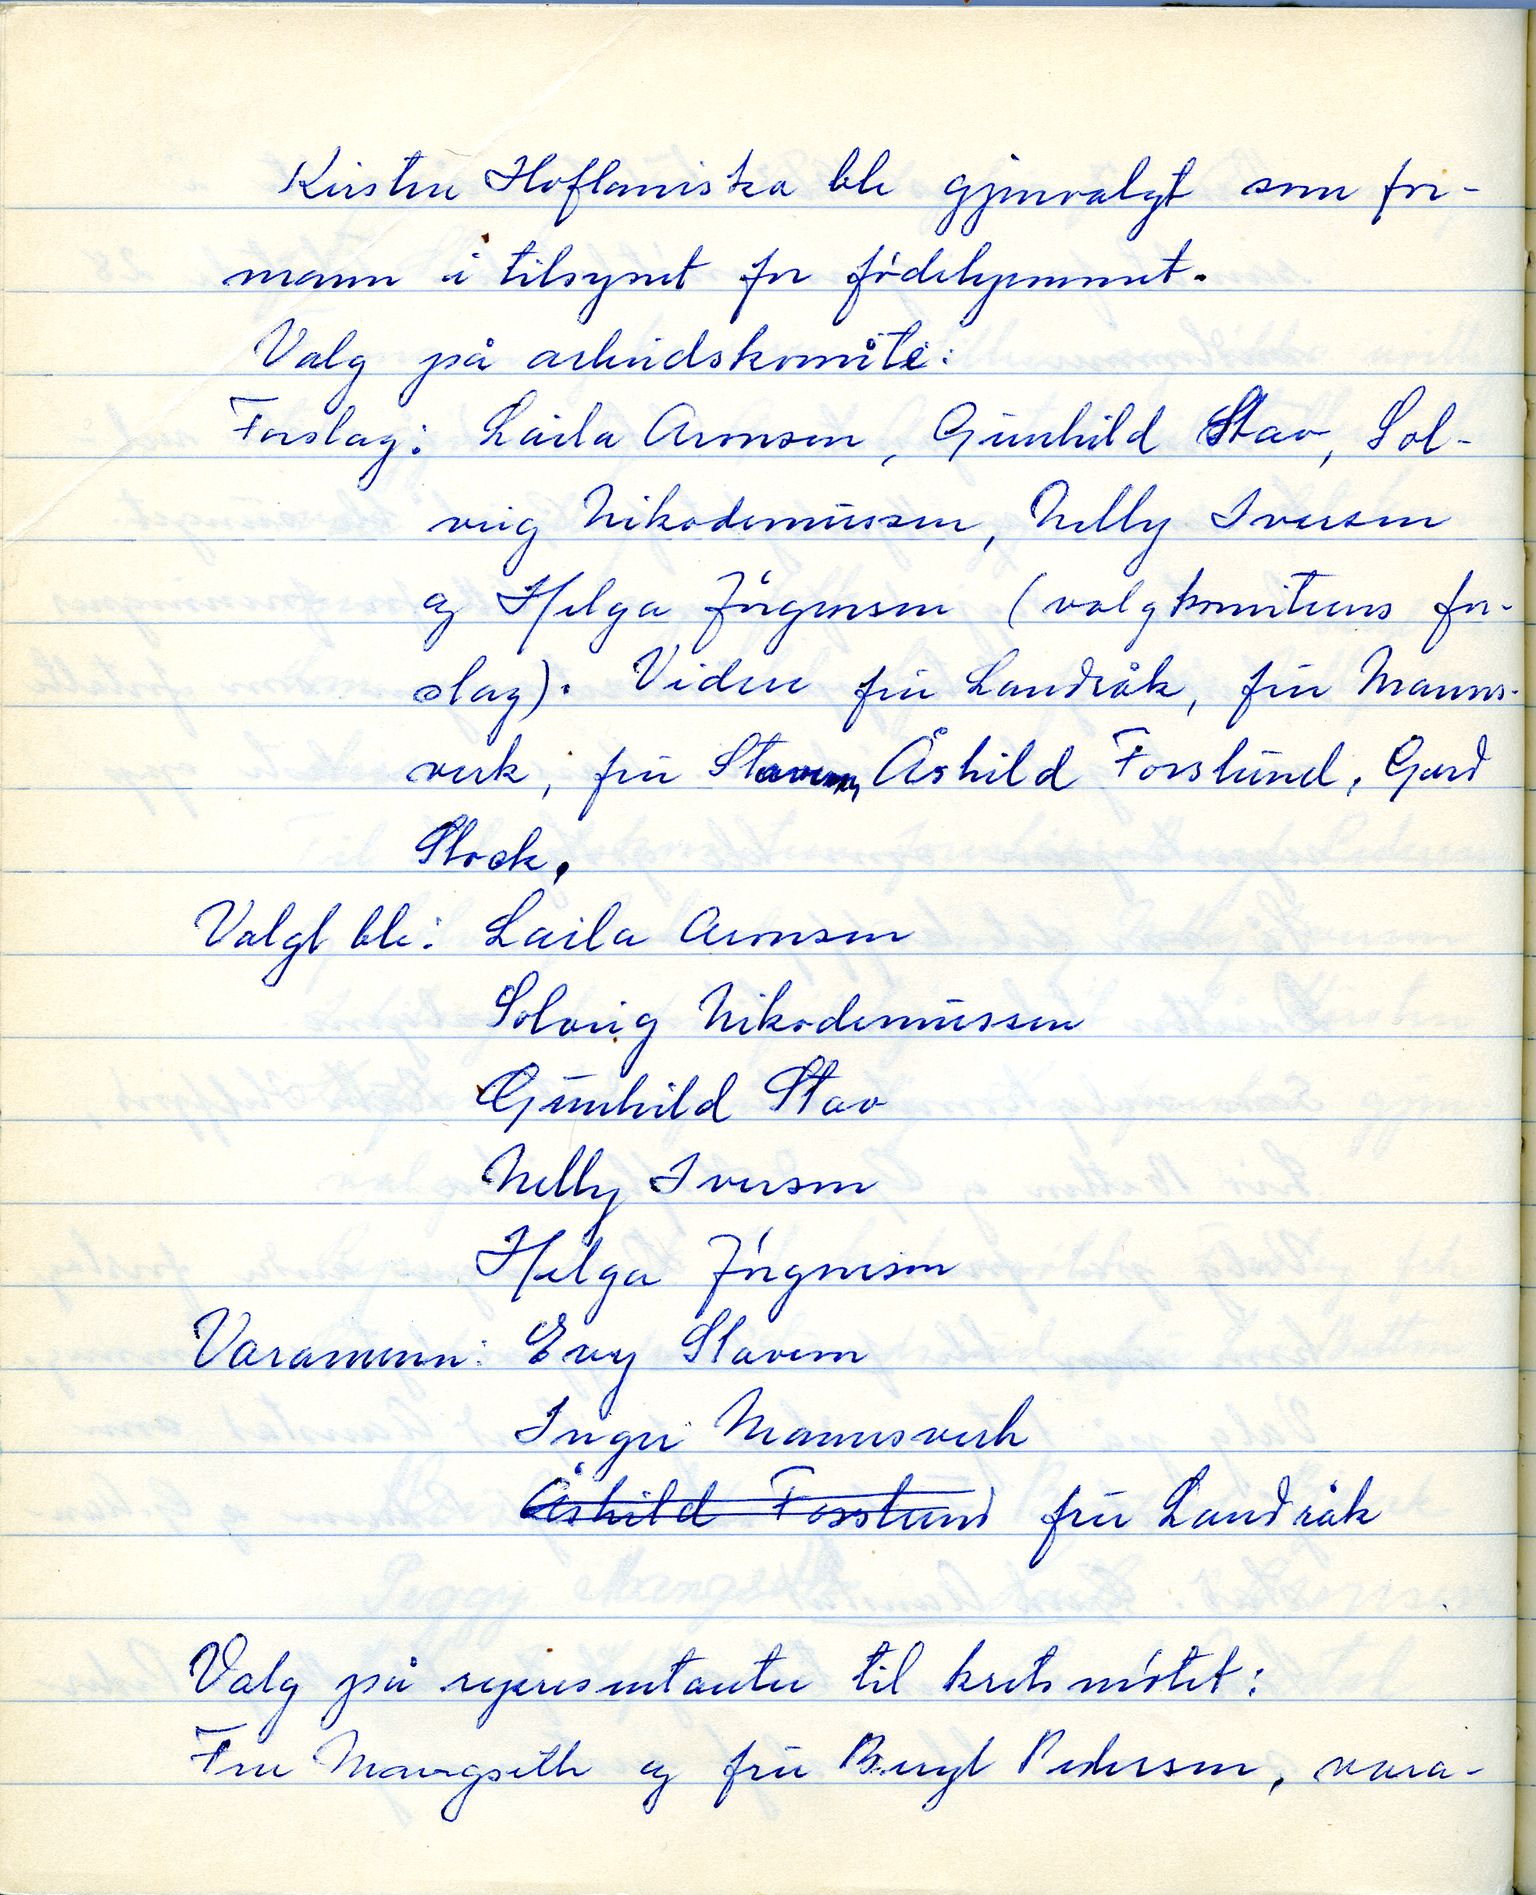 Kirsten Hoflamiska ble gjenvalgt som for-
mann i tilsynet for fødehjemmet.
Valg på arbeidskomité:
Forslag: Laila Aronsen, Gunhild Stav, Sol-
veig Nikodemussen, Nelly Iversen
og Helga Jørgensen (valgkomiteens for-
slag). Videre fru Landråk, fru Manns-
verk, fru Stavem, Åshild Forslund, Gerd
Stock.
Valgt ble: Laila Aronsen
Solveig Nikodemussen
Gunhild Stav
Nelly Iversen
Helga Jørgensen
Varamenn: Evy Stavem
Inger Mannsverk
Åshild Forslund fru Landråk
Valg på representanter til kretsmøtet:
Fru Mangseth og fru Bergl Pedersen, vara-